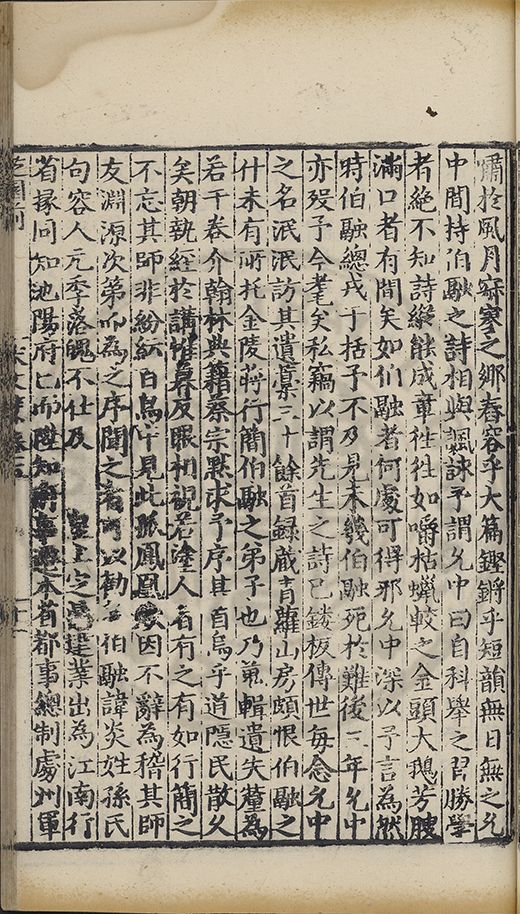 嘯於風月寂寥之鄉舂容乎大篇鏗鏘乎短韻無日無之允
中間持伯融之詩相與諷詠予謂允中曰自科舉之習勝學
者絕不知詩縱能成章往往如嚼枯蠟較之金頭大鵝芳腴
滿口者有間矣如伯融者何處可得邪允中深以予言為然
時伯融總戎于括予不及見未幾伯融死於難後三年允中
亦歿予今耄矣私竊以謂先生之詩已鏤板傳世每念允中
之名泯泯訪其遺藁三十餘首録蔵青蘿山房頗恨伯融之
什未有所托金陵蔣行簡伯融之弟子也乃蒐輯遺失釐為
若干卷介翰林典籍蔡宗默求予序其首烏乎道隠民散久
矣朝執經於講帷暮反眼相視若塗人者有之有如行簡之
不忘其師非紛紜百鳥中見此孤鳳凰歟因不辭為稽其師
友淵源次第而為之序聞之者可以勸矣伯融諱炎姓孫氏
句容人元季落魄不仕及 皇上定建業出為江南行
省掾同知池陽府已而陞知府事遷本省都事總制處州軍
芝園